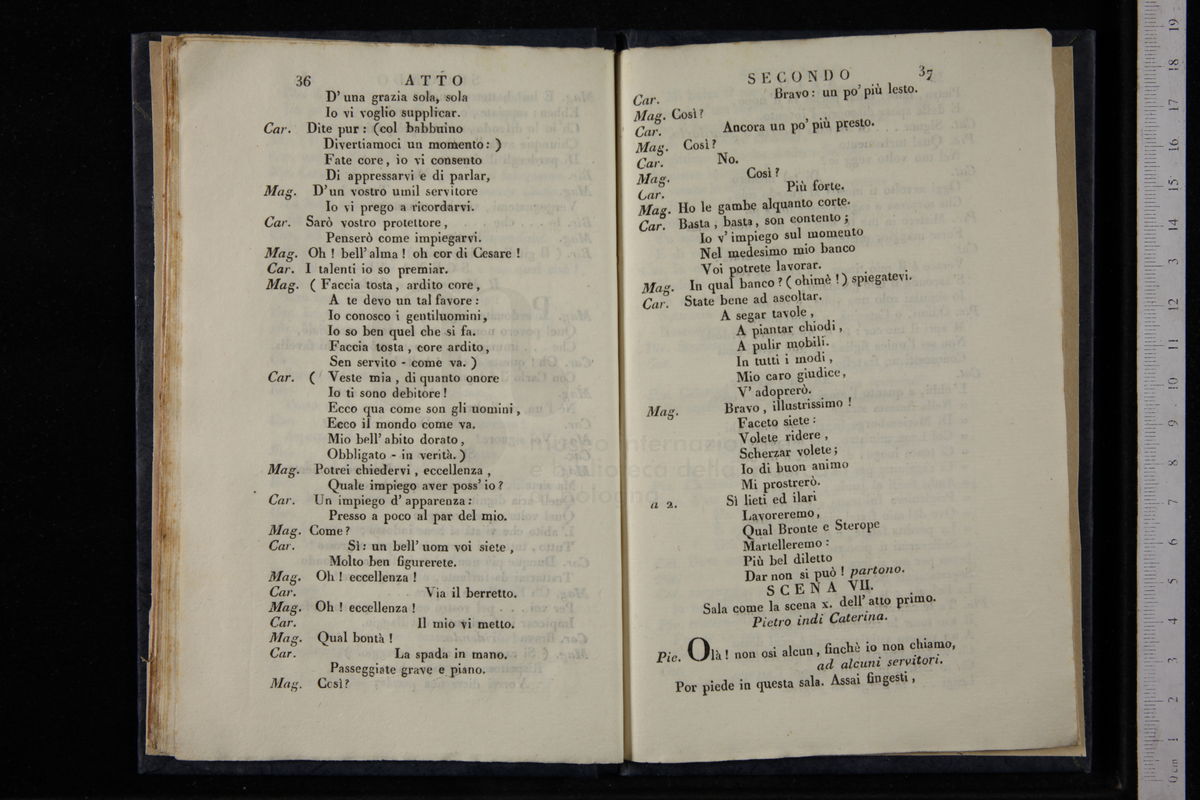 36 ATTO
D' una grazia sola, sola
Io vi voglio supplicar.
Car. Dite pur : (col babbuino
Divertiamoci un momento : )
Fate core, io vi consento
Di appressarvi e di parlar,
Mag. D'un vostro umil servitore
Io vi prego a ricordarvi.
Car. Sarò vostro protettore,
Penserò come impiegarvi.
Mag. Oh ! bell' alma ! oh cor di Cesare !
Car. I talenti io so premiar.
Mag. ( Faccia tosta, ardito core,
A te devo un tal favore :
Io conosco i gentiluomini,
Io so ben quel che si fa.
Faccia tosta, core ardito,
Sen servito - come va. )
Car. ( Veste mia, di quanto onore
Io ti sono debitore !
Ecco qua come son gli uomini,
Ecco il mondo come va.
Mio bell' abito dorato,
Obbligato - in verità. )
Mag. Potrei chiedervi, eccellenza,
Quale impiego aver poss' io ?
Car. Un impiego d' apparenza :
Presso a poco al par del mio.
Mag. Come ?
Car. Sì : un bell' uom voi siete,
Molto ben figurerete.
Mag. Oh ! eccellenza !
Car. Via il berretto.
Mag. Oh ! eccellenza !
Car. Il mio vi metto.
Mag. Qual bontà !
Car. La spada in mano.
Passeggiate grave e piano.
Mag. Così ?
SECONDO 37
Car. Bravo : un po' più lesto.
Mag. Così ?
Car. Ancora un po' più presto.
Mag. Così ?
Car. No.
Mag. Così ?
Car. Più forte.
Mag. Ho le gambe alquanto corte.
Car. Basta, basta, son contento ;
Io v' impiego sul momento
Nel medesimo mio banco
Voi potrete lavorar.
Mag. In qual banco ? ( ohimè ! ) spiegatevi.
Car. State bene ad ascoltar.
A segar tavole,
A piantar chiodi,
A pulir mobili.
In tutti i modi,
Mio caro giudice,
V' adoprerò.
Mag. Bravo, illustrissimo !
Faceto siete :
Volete ridere,
Scherzar volete ;
Io di buon animo
Mi prostrerò.
a 2. Sì lieti ed ilari
Lavoreremo,
Qual Bronte e Sterope
Martelleremo :
Più bel diletto
Dar non si può ! partono.
SCENA VII.
Sala come la scena x. dell' atto primo.
Pietro indi Caterina.
Pie. Olà ! non osi alcun, finchè io non chiamo,
ad alcuni servitori.
Por piede in questa sala. Assai fingesti,
museo internazionale
e biblioteca della
0 cm 1 2 3 4 5 6 7 8 9 10 11 12 13 14 15 16 17 18 19